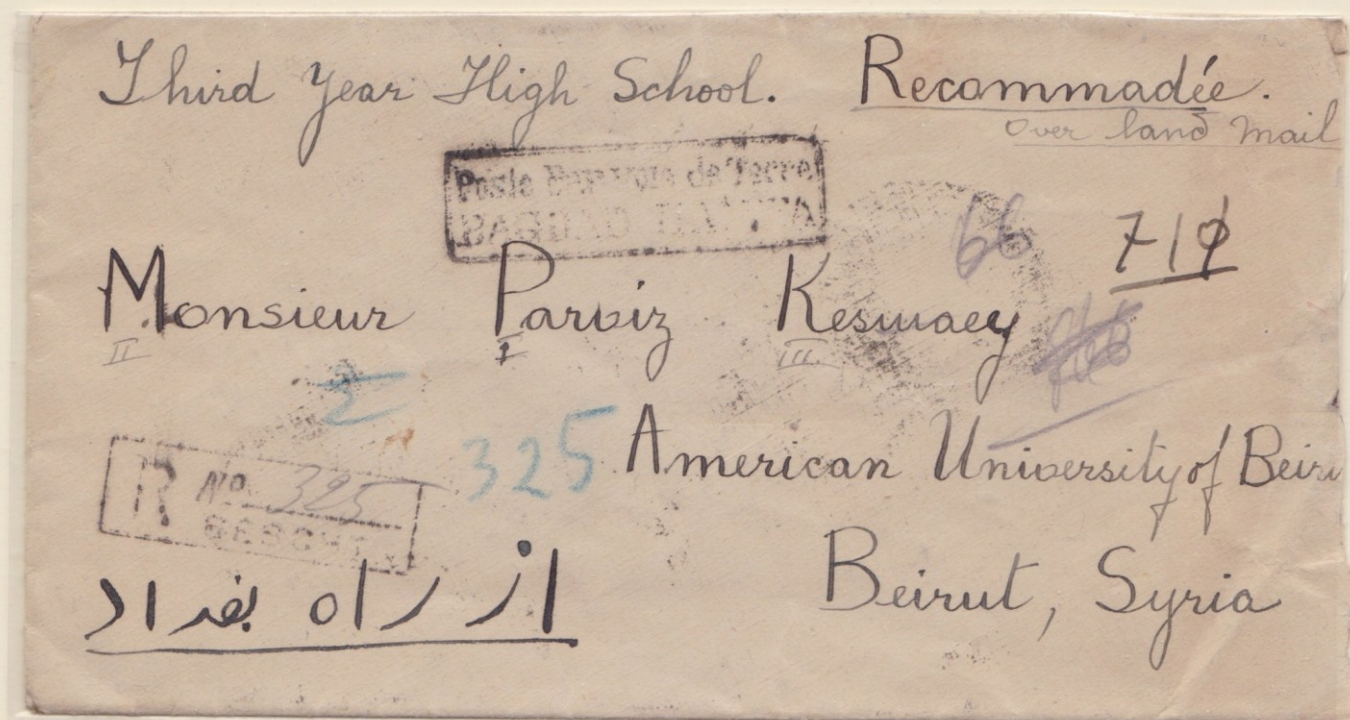 Third Year High School. Recommadée.
over land mail
Poste Par voie de Terre
BAGDAD HAIFFA
66 719
Monsieur Parviz Keswaey
II I III
2
325 American University of Beiru
R No. 325
Beirut, Syria
از راه بغداد